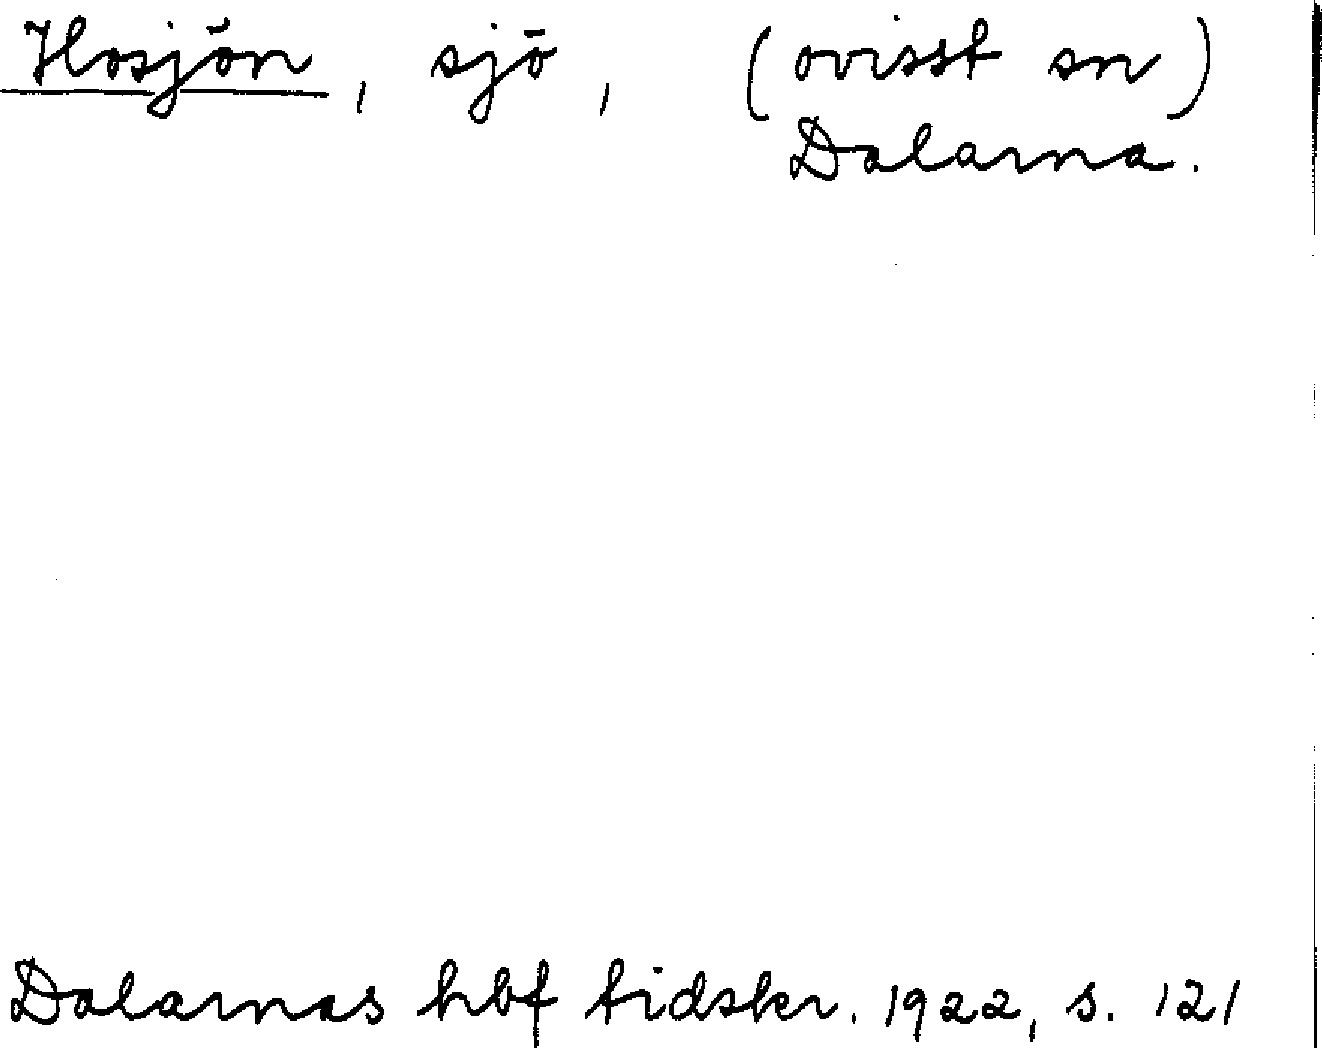 Hosjön, sjö, (ovisst sn)
Dalarna.
Dalarnas hbf tidskr. 1922, s. 121